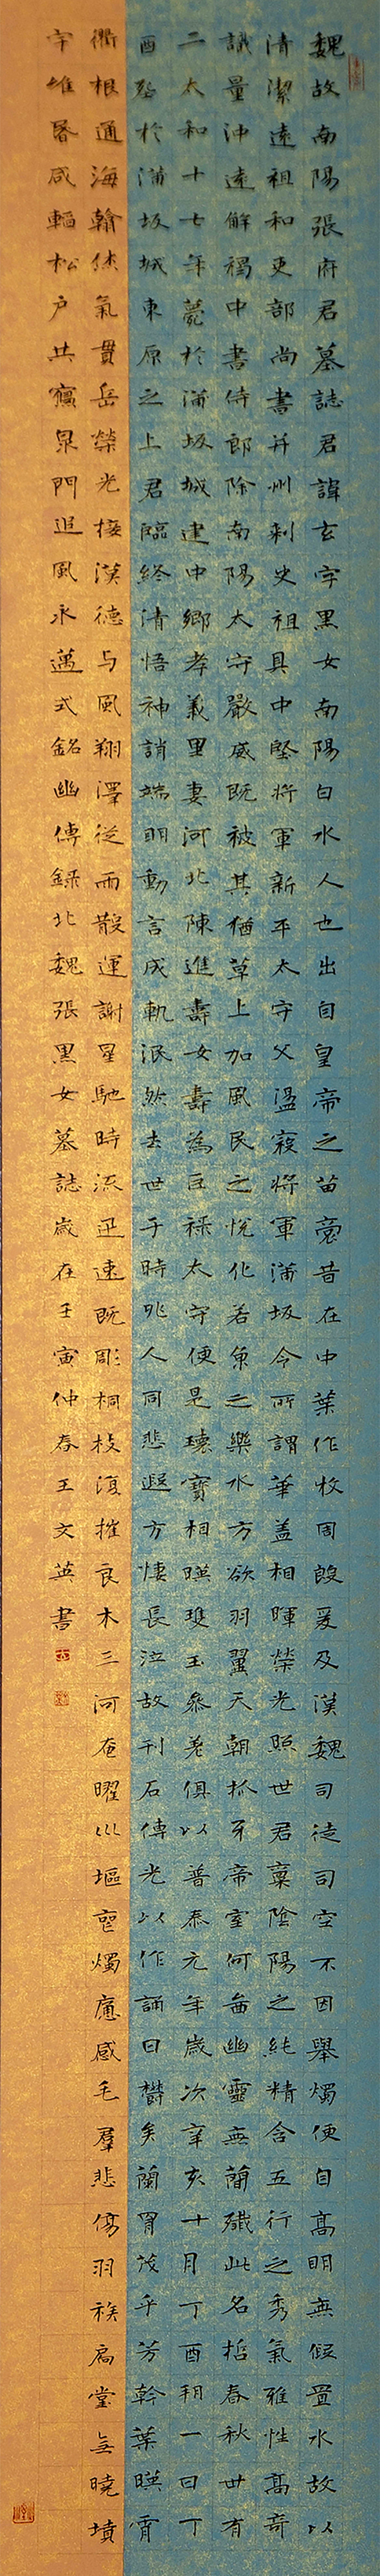 魏故南陽張府君墓誌君諱玄字黑女南陽白水人也出自皇帝之苗裔昔在中葉作牧周殷爰及漢魏司徒司空不因舉燭便自高明無假置水故以
清潔遠祖和吏部尚書并州刺史祖具中堅將軍新平太守父盪寇將軍蒲坂令所謂華蓋相暉榮光照世君稟陰陽之純精含五行之秀氣雅性高奇
識量沖遠解褐中書侍郎除南陽太守嚴威既被其猶草上加風民之悅化若魚之樂水方欲羽翼天朝抓牙帝室何啚幽靈無簡殲此名哲春秋卅有
二太和十七年薨於蒲坂城建中鄉孝義里妻河北陳進壽女壽為巨祿太守便是瓌寶相暎瓊玉參差俱以普泰元年歲次辛亥十月丁酉朔一日丁
酉塟於蒲坂城東原之上君臨終清悟神誚端明動言成軌泯然去世于時兆人同悲遐方悽長泣故刊石傳光以作誦曰欝矣蘭胃茂乎芳幹葉暎霄
衢根通海翰休氣貫岳榮光接漢德与風翔澤從雨散運謝星馳時流迅速既彫桐枝復摧良木三河奄曜巛塸㐮燭廗感毛羣悲傷羽族扃堂無曉墳
宇唯昏咸輼松戶共寢泉門追風永邁式銘幽傳錄北魏張黑女墓誌歲在壬寅仲春王文英書